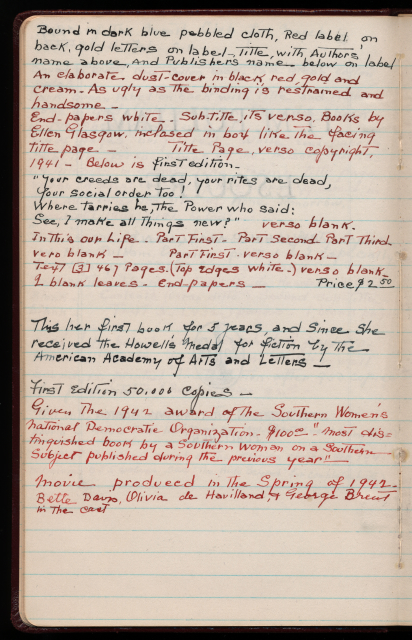 Bound in dark blue pebbled cloth, Red label on
back, gold letters on label, Title, with Authors
name above, and Publishers name below on label
An elaborate dust-cover in black, red, gold and
cream. As ugly as the binding is restrained and
handsome —
End-papers white. Sub-title, its verso, Books by
Ellen Glasgow, inclosed in box like the facing
title page — Title Page, verso copyright,
1941 — Below is first edition.
"Your creeds are dead, your rites are dead,
Your social order too!
Where tarries he, the Power who said:
See, I make all things new?" verso blank.
In this our Life. Part First. Part Second Part Third
vero blank — Part First. verso blank —
Text [3] 467 Pages. (Top edges white.) verso blank
2 blank leaves. End-papers — Price $2.50
This her first book for 5 years, and since she
received the Howell's Medal for fiction by the
American Academy of Arts and Letters —
First Edition 50.000 copies —
Given the 1942 award of the Southern Women's
National Democratic Organization. $100.00 "most dis=
tinguished book by a Southern Woman on a Southern
Subject published during the previous year" —
Movie produced in the Spring of 1942.
Bette Davis, Olivia de Havilland, & George Brent
in the cast